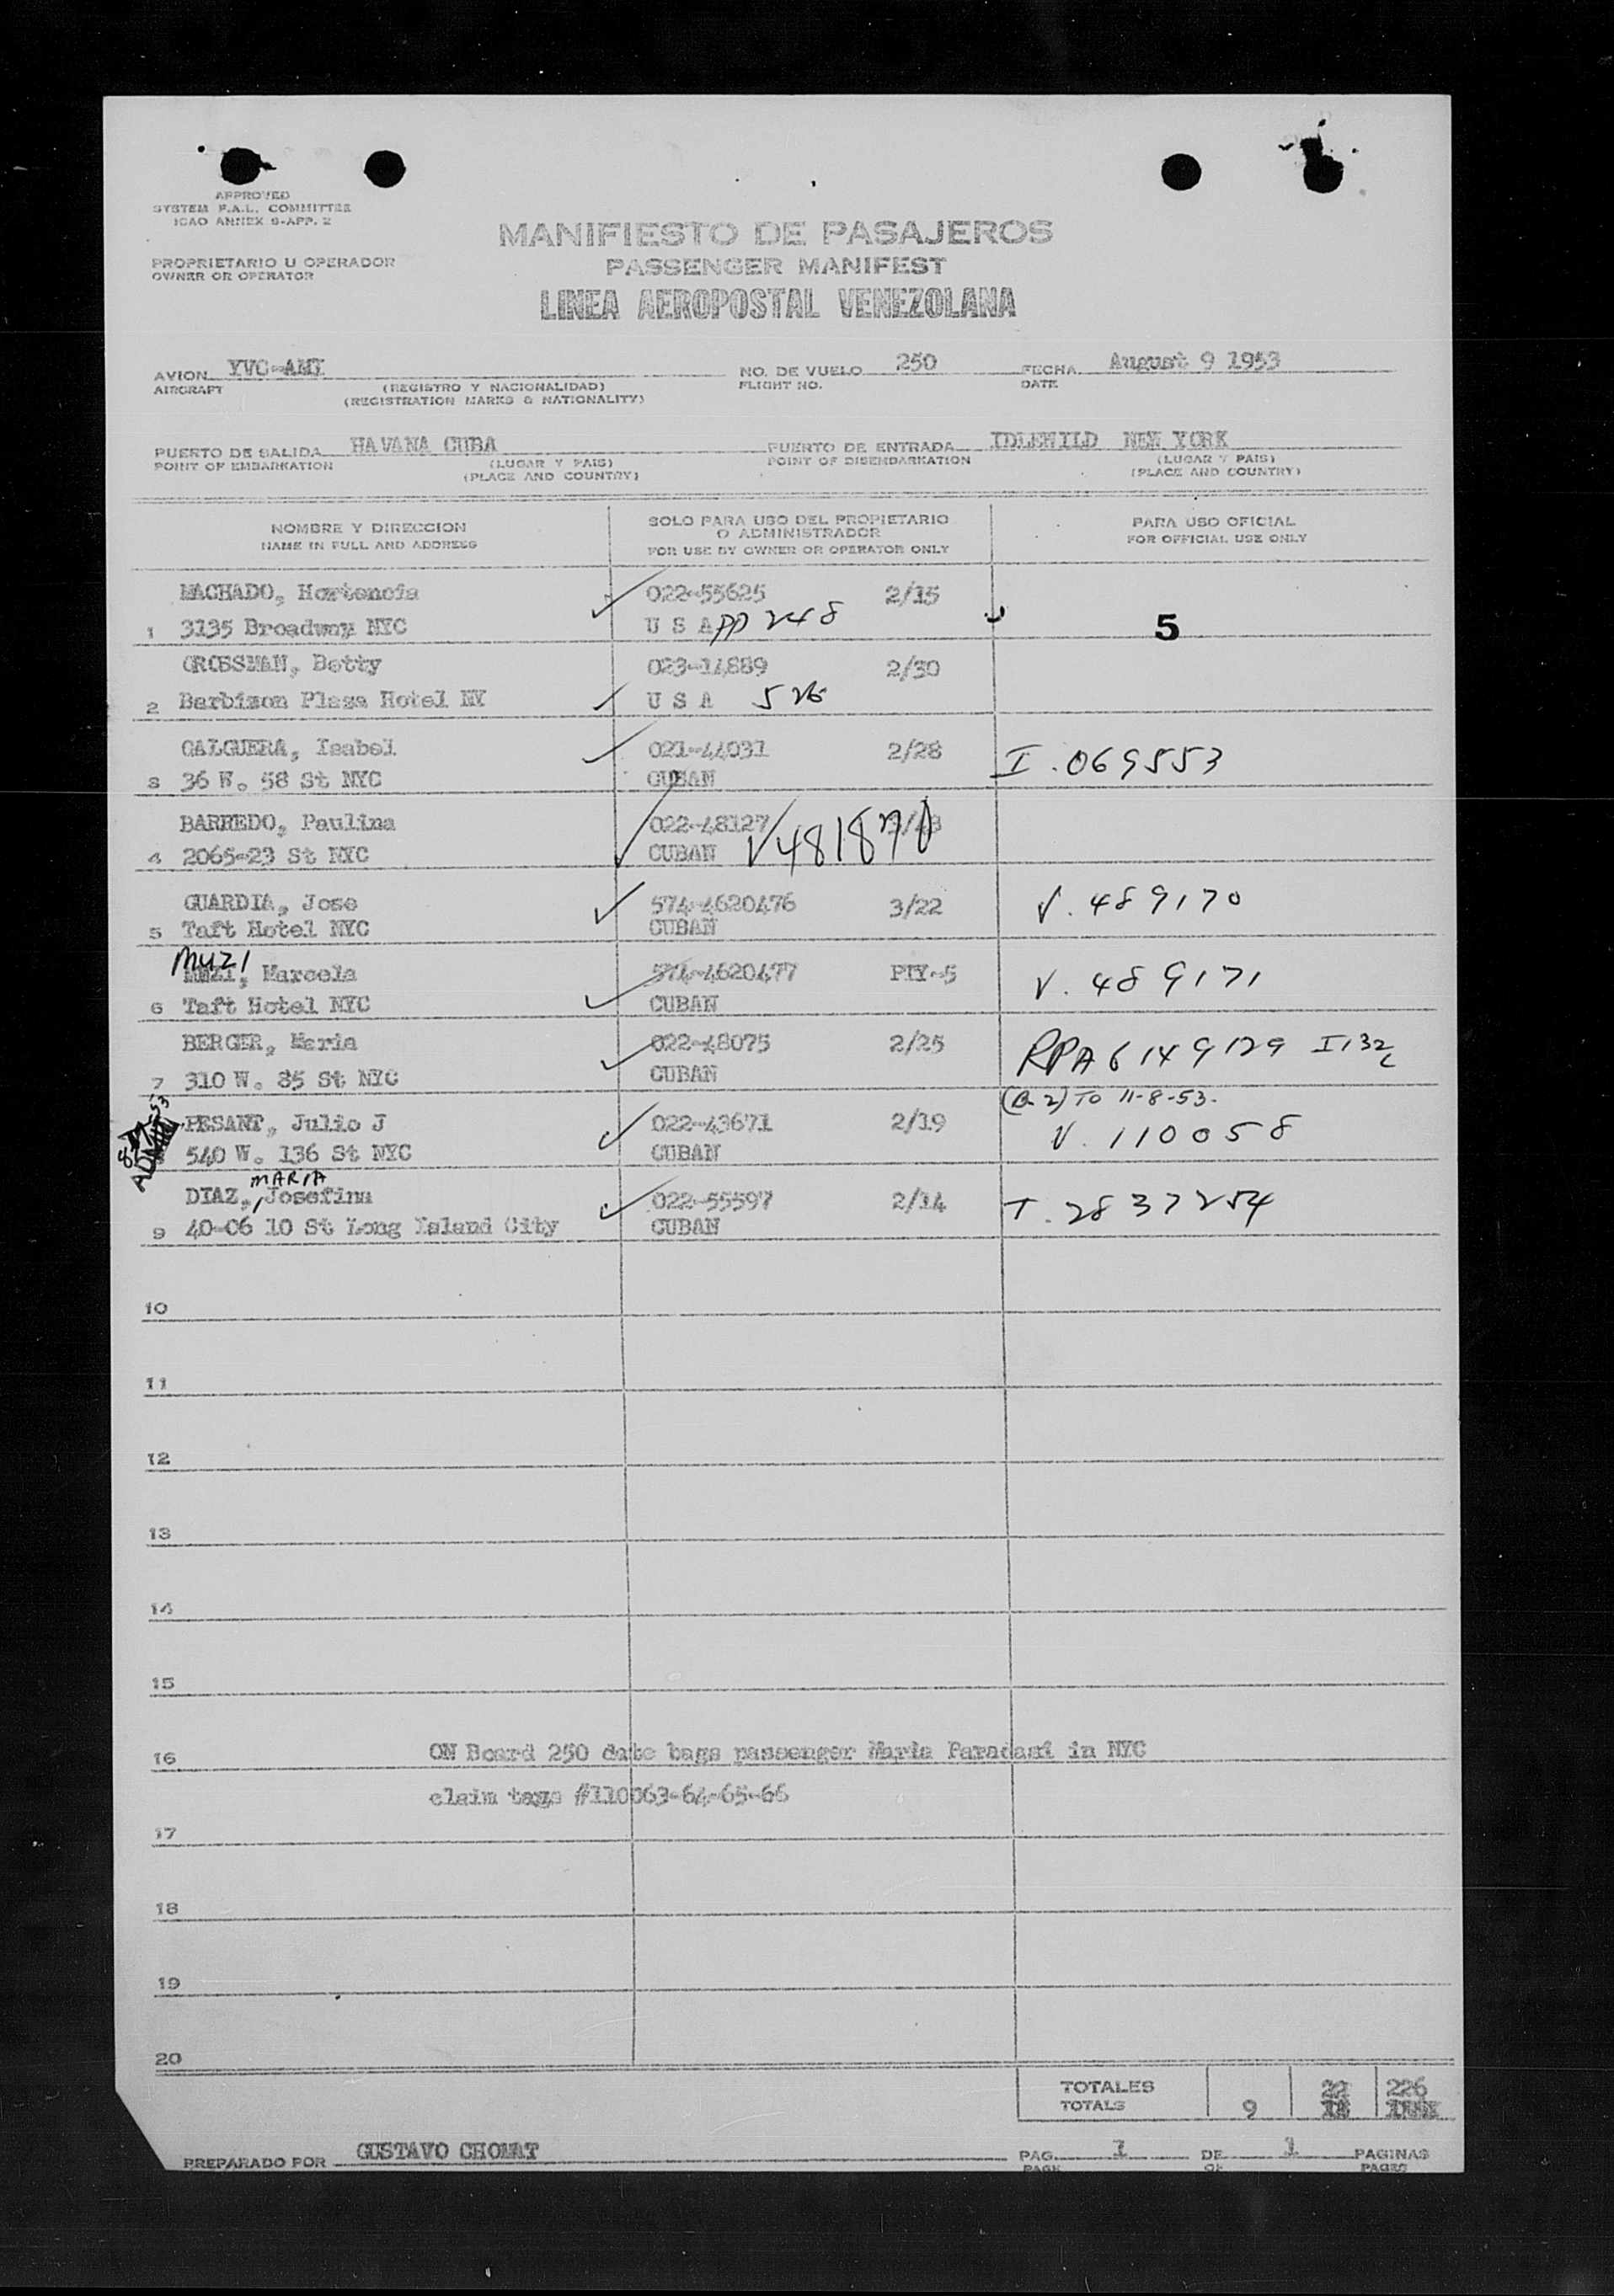 APPROVED
SYSTEM F.A.L. COMMITTEE
ICAO ANNEX 9-APP. 2
MANIFIESTO DE PASAJEROS
PROPRIETARIO U OPERADOR
OWNER OR OPERATOR
PASSENGER MANIFEST
LINEA AEROPOSTAL VENEZOLANA
AVION YVC-AMI NO. DE VUELO 250 FECHA August 9 1953
AIRCRAFT (REGISTRO Y NACIONALIDAD) FLIGHT NO. DATE
(REGISTRATION MARKS & NATIONALITY)
PUERTO DE SALIDA HAVANA CUBA PUERTO DE ENTRADA IDLEWILD NEW YORK
POINT OF EMBARKATION (LUGAR Y PAIS) POINT OF DISEMBARKATION (LUGAR Y PAIS)
(PLACE AND COUNTRY) (PLACE AND COUNTRY)
NOMBRE Y DIRECCION SOLO PARA USO DEL PROPIETARIO O ADMINISTRADOR PARA USO OFICIAL
NAME IN FULL AND ADDRESS FOR USE BY OWNER OR OPERATOR ONLY FOR OFFICIAL USE ONLY
MACHADO, Hortencia 022-55625 2/15
1 3135 Broadway NYC U S A PP 248 5
GROSSMAN, Betty 023-14889 2/30
2 Barbizon Plaza Hotel NY U S A 526
CALGUERA, Isabel 021-44031 2/28 I.069553
3 36 W. 58 St NYC CUBAN
BARREDO, Paulina 022-48127
4 2065-23 St NYC CUBAN V481870
GUARDIA, Jose 574-4620476 3/22 V.489170
5 Taft Hotel NYC CUBAN
MUZI
MUZI, Marcela 574-4620477 PTY-5 V.489171
6 Taft Hotel NYC CUBAN
BERGER, Maria 022-48075 2/25 RPA6149129 I132
7 310 W. 85 St NYC CUBAN
(B-2) TO 11-8-53.
PESANT, Julio J 022-43671 2/19 V.110058
540 W. 136 St NYC CUBAN
MARIA
DIAZ, Josefina 022-55597 2/14 T.2837254
9 40-06 10 St Long Island City CUBAN
10
11
12
13
14
15
16 ON Board 250 date bags passenger Maria Paradasi in NYC
claim tags #110063-64-65-66
17
18
19
20
TOTALES 22 226
TOTALS 9
PREPARADO POR GUSTAVO CHOMAT PAG. 1 DE 1 PAGINAS
PAGE OF PAGES